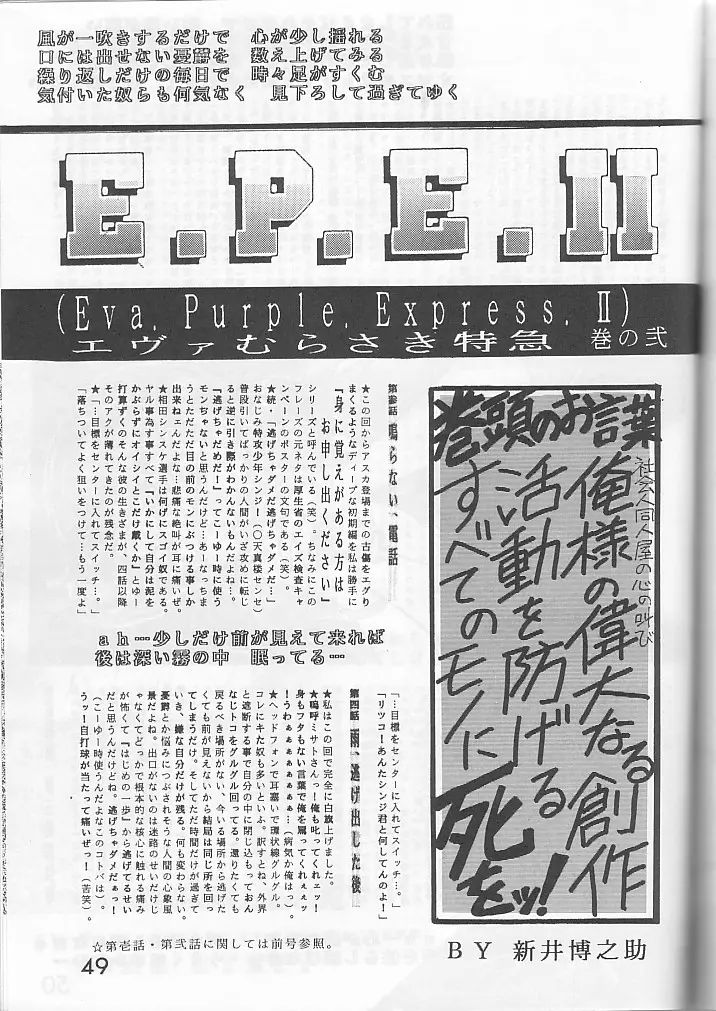 風が一吹きするだけで　心が少し揺れる
口には出せない憂欝を　数え上げてみる
繰り返しだけの毎日で　時々足がすくむ
気付いた奴らも何気なく　見下ろして過ぎてゆく
E.P.E.II
(Eva. Purple. Express. Ⅱ)
エヴァむらさき特急　巻の弐
巻頭のお言葉
社会人同人屋の心の叫び
俺様の偉大なる創作
活動を防げる
すべてのモノに
死をッ!
BY 新井博之助
第参話 鳴らない、電話
★この回からアスカ登場までの古傷をエグり
まくるようなディープな初期編を私は勝手に
『身に覚えがある方は
お申し出ください』
シリーズと呼んでいる（笑）。ちなみにこの
フレーズの元ネタは厚生省のエイズ検査キャ
ンペーンのポスターの文句である（笑）。
★続・「逃げちゃダメだ逃げちゃダメだ…」
おなじみ特攻少年シンジ！（〇天真楼センセ）
普段引いてばっかりの人間がいざ攻めに転じ
ると逆に引き際がわかんないもんだよね…。
「逃げちゃだめだ！」ってこーゆー時に使う
モンちゃないと思うんだけど…あーなっちま
うとただただ目の前のモンにぶつける事しか
出来ねェんだよな…悲痛な絶叫が耳に痛いぜ。
★相田シンスケ選手は何げにスゴイ奴である。
ヤル事為す事すべて『いかにして自分は泥を
かぶらずにオイシイとこだけ戴くか』とゆー
打算ずくのそんな彼の生きざまが、四話以降
そのアクが薄れてきたのが残念だ。
★「…目標をセンターに入れてスイッチ…。」
「落ちついてよく狙いをつけて…もう一度よ」
ah…少しだけ前が見えて来れば
後は深い霧の中　眠ってる…
「…目標をセンターに入れてスイッチ…。」
「リツコ！あんたシンジ君と何してんのよ！」
第四話 雨、逃げ出した後
★私はこの回で完全に白旗上げました。
★嗚呼ミサトさんっ！俺も叱ってくれェッ！
身もフタもない言葉で俺を罵ってくれェェッ
！うわぁぁぁぁぁぁぁ…（病気か俺はっ）。
★ヘッドフォンで耳塞いで環状線グルグル。
コレにキた奴も多いといふ。訳すとね、外界
と遮断する事で自分の中に閉じ込もっておん
なじトコをグルグル回ってる。還りたくても
戻るべき場所がない、今いる場所から逃げた
くても前が見えないから結局は同じ所を回っ
てしまうだけ。そしてただ時間だけが過ぎて
いき、嫌な自分だけが残る。何も変わらない。
憂欝とか悩みにつぶされそうな人間の心象風
景だよね。出口がないのは迷路のせいだけじ
ゃなくてどっかで根本的な核心に触れる痛み
が怖くて『はじめの一歩』から逃げてるせい
だと思うんだけどね。逃げちゃダメだぁっ！
（こーゆー時使うんだよなこのコトバは）。
うッ！自打球が当たって痛いぜっ！（苦笑）。
☆第壱話・第弐話に関しては前号参照。
49